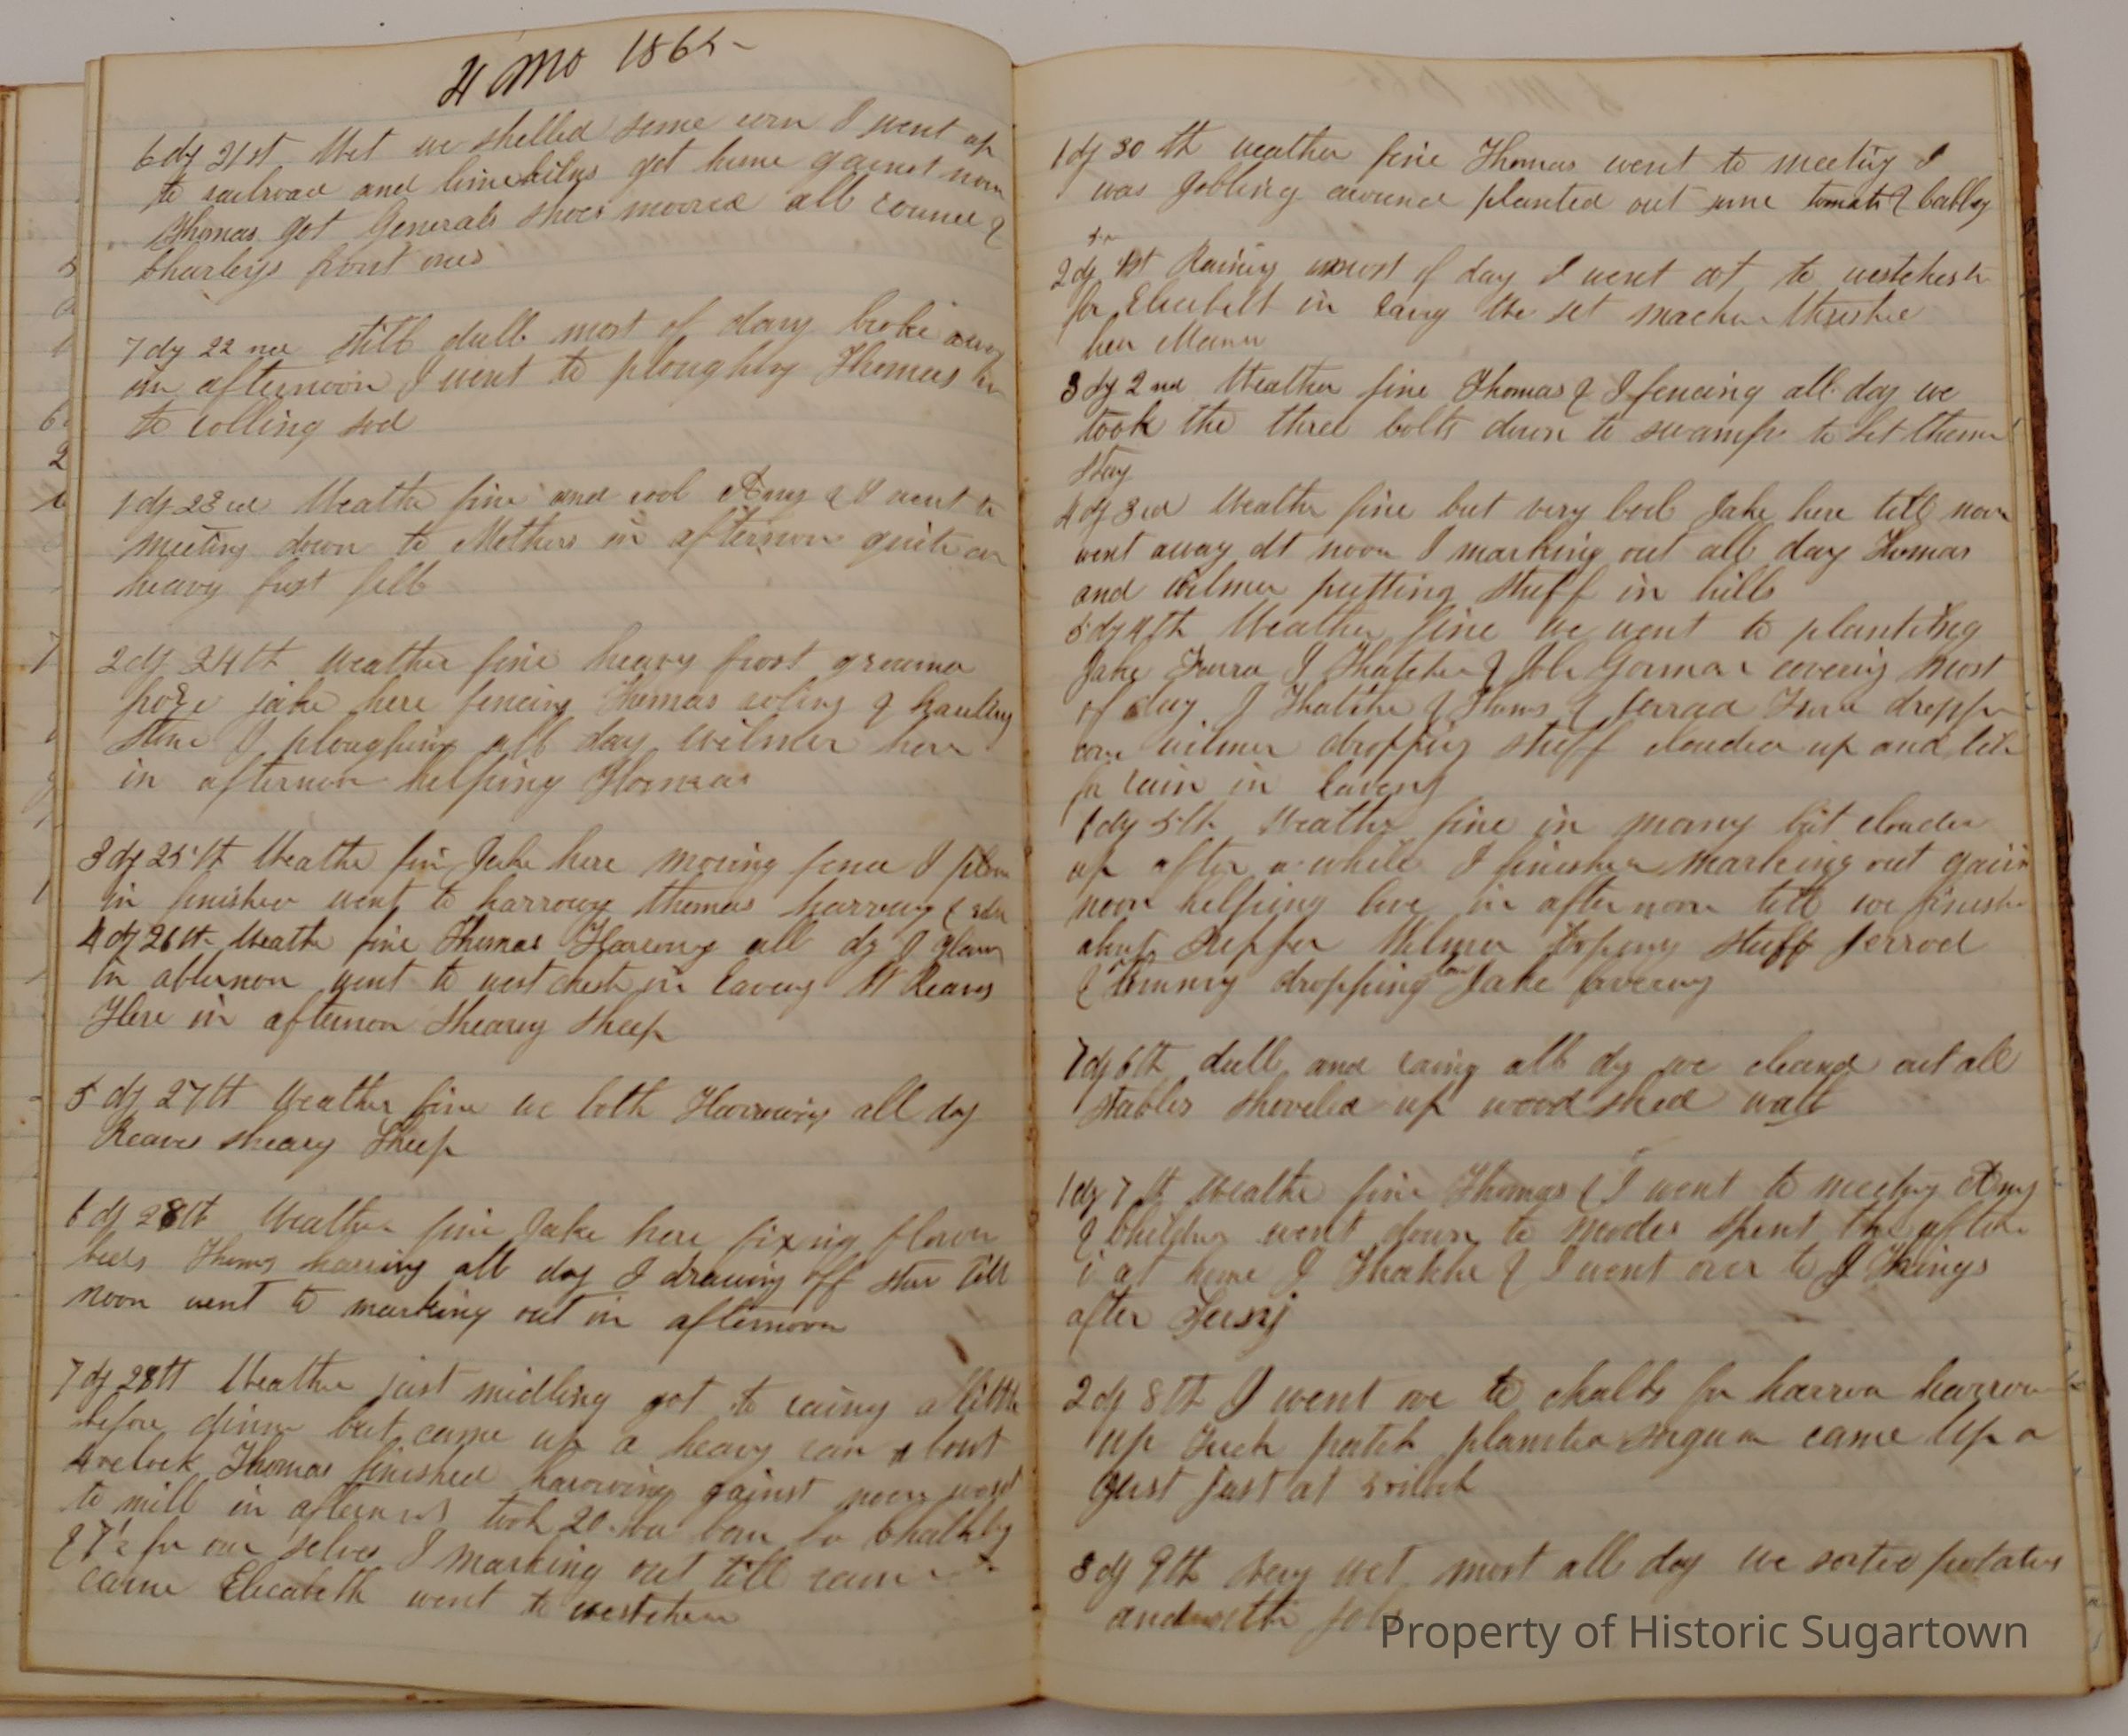 4 Mo 1865
6 dy 21st Wet we shelled some corn I went up
to railroad and limekilns got home gainst noon
Thomas got Generals shoes mooved all round &
Charleys front ones
7 dy 22 nd still dull most of day broke away
in afternoon I went to ploughing Thomas
to rolling sod
1 dy 23 rd Weathe fine and cool Amy & I went to
meeting down to Mothers in afternoon quite a
heavy frost fell
2 dy 24th weathe fine heavy frost ground
froze jake here fencing Thomas roling & hauling
stone I ploughing all day wilmer here
in afternoon helping Thomas
3 dy 25th Weathe fin Jake here moving fence I plow
in finished went to harrowing thomas harrowing &
4 dy 26th Weathe fine Thomas Harowing all dy I plown
in afternon went to westchester in eaveng W Reaves
Here in afternon shearing sheep
5 dy 27th Weather fine we both Harrowing all day
Reaves shearing Sheep
6 dy 28th Weather fine Jake here fixing flower
beds Thomas harring all day I drawing off stone till
noon went to marking out in afternoon
7 dy 28th Weathe just midling got to raining a little
before dinner but came up a heavy rain about
4 oclock Thomas finished harowing gainst noon went
to mill in afternoon took 20 bu for
& 7 1/2 for our selves I marking out till rain
came Elizabeth went to westchester
1 dy 30 th weather fine Thomas went to meeting I
was jobbing around planted out some tomato & Cabbag
5 m
2 dy 1st Rainy most of day I went ot to westchester
for Elizabeth in eavng the set machin
her Mann
3 dy 2 nd Weathe fine Thomas & I fencing all day we
took the three colts down to swamp to let them
stay
4 dy 3 rd Weathe fine but very cool Jake here till noon
went away at noon I marking out all day Thomas
and wilmer putting stuff in hills
5 dy 4th Weathe fine we went to planting
Jake I Thatcher & Job Gorman covering most
of day J Thatche & Thoms & Jerrad droppn
corn wilmer dropping stuff clouded up and like
for rain in eaveng
6 dy 5th Weathe fine in morng but clouded
up after a while I finished marking out gainst
noon helping cove in afternoon till we finishe
about supper Wilmer droping stuff Jerrod
& Tommy dropping corn Jake covering
7 dy 6th dull and raing all dy we cleand out all
stables shoveled up wood shed wall
1 dy 7 th Weathe fine Thomas & I went to meeting Amy
& Children went down to spent the after
at home J Thatche & I went over to J Kings
after
2 dy 8th I went ove to chalks for harrow harrow
up patch planted sorgum came up a
gust just at 5 oclock
3 dy 9th very wet most all day we sorted potatoes
and
Property of Historic Sugartown